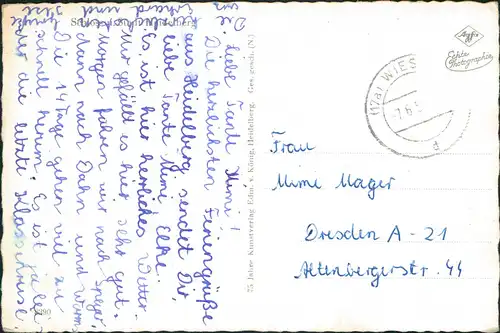 Liebe Tante Mimi!
Die herzlichsten Feriengrüße
aus Heidelberg sendet Dir,
liebe Tante Mimi, Elke.
Es ist hier herrliches Wetter.
Mir gefällt es hier sehr gut.
Morgen fahren wir nach Speyer,
dann nach Dahn und Worms.
Die 14 Tage gehen viel zu
schnell herum. Es ist ja lei-
der die letzte Klassenreise.
75 Jahre Kunstverlag Edm. v. König, Heidelberg. Ges. gesch. (N.)
Agfa
Echte
Photographie
(17a) WIES
-7.6.5
d
Frau
Mimi Mager
Dresden A - 21
Altenbergerstr. 44